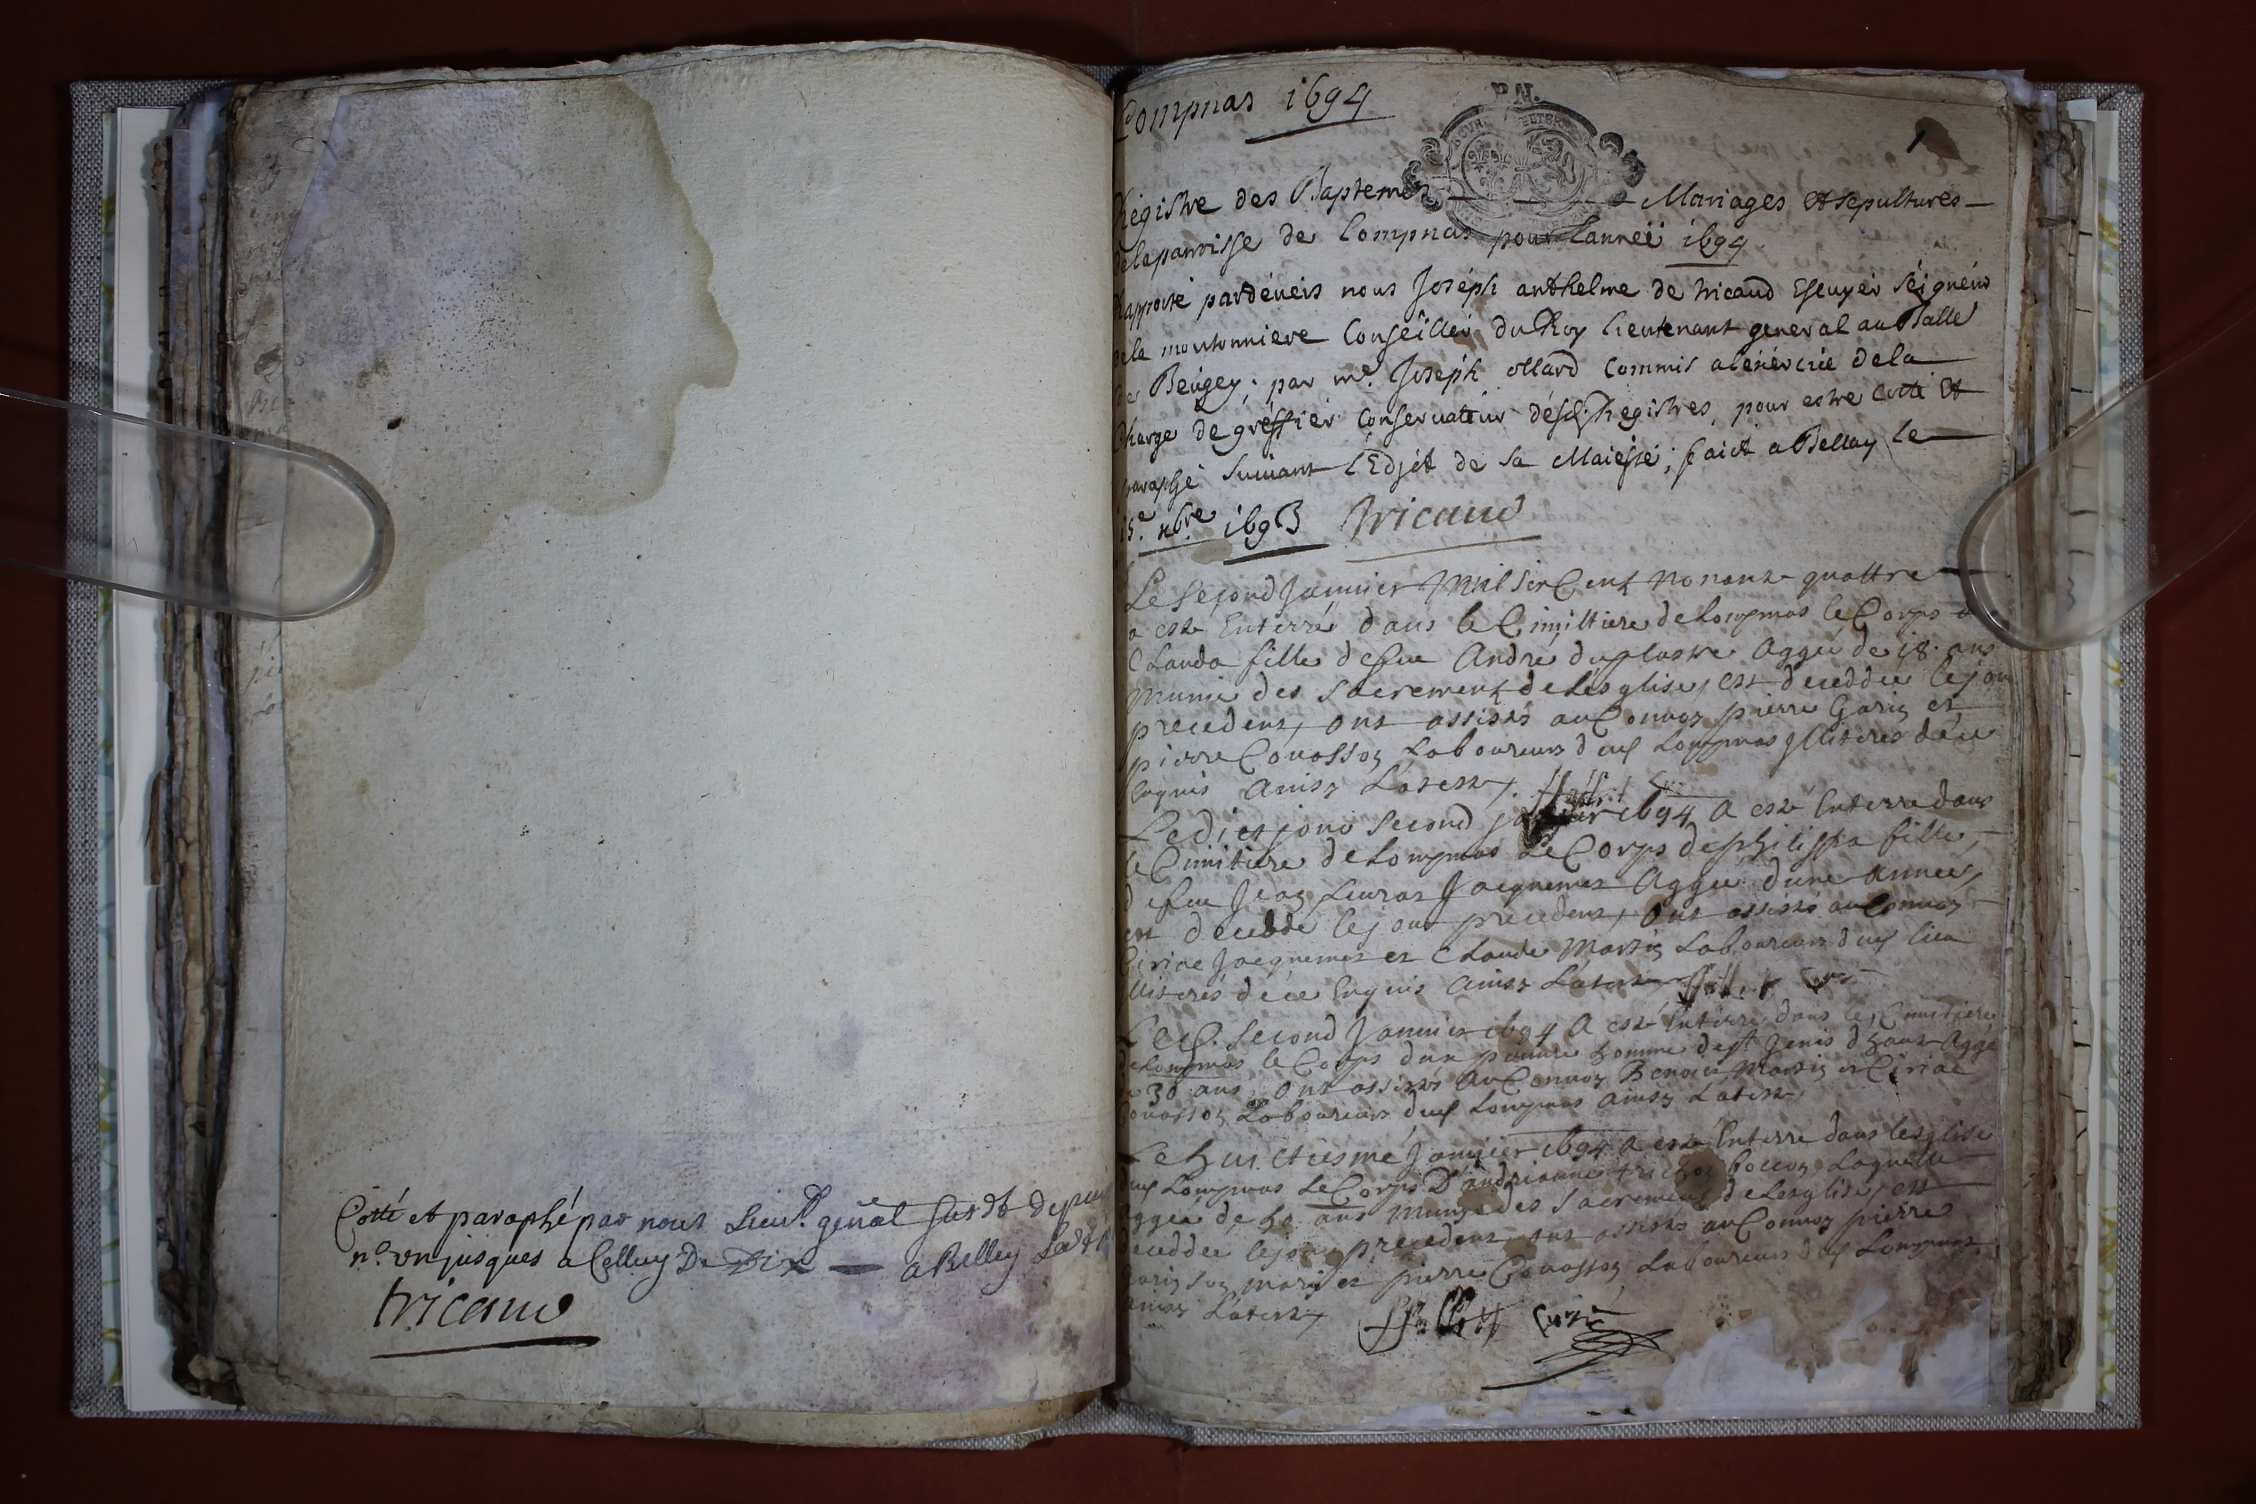 Cotté et paraphé par nous Lieut. gnâl susdt depuis
n.º un jusques a Celluy De Dix — a Belley
tricaud
Lompnas 1694
P.N.
1
Registre des Baptemes Mariages et sepultures
de la parroisse de Lompnas pour Lanneé 1694
Rapporté pardeuers nous Joséph anthelme de tricaud Escuyér séigneur
de la moutonniere Conseillér du Roy lieutenant general au Balle
de Beugey; par me. Joséph ollard Commis a lexercice de la
charge de gréffiér Conseruateur désd. Registres, pour estre Cotté Et
paraphé suiuant l'Edjét de sa Maiesté; faict a Bellay le
15e. xbre 1693 tricaud
Le second Januier Mil six Cent nonant quattre
a esté Enterré dans le Cimittiere de Lompnas le Corps de
Clauda fille de feu André duplastre Aggée de 18. ans
munie des sacrement de Lesglise, est deceddée le jour
precedent, ont assisté au Conuoy pierre Gariz et
pierre Couasson Laboureurs dud Lompnas Illiteres de ce
Enquis ainsy L'atteste.
Ledict jour second januier 1694 a esté Enterré dans
le Cimitiere de Lompnas Le Corps de philippa fille,
de feu Jean Jacquemet Aggée d'une année,
est decedde le jour precedent, ont assisté au Conuoy
Ciriac Jacquemet et Claude Martin Laboureurs dud lieu
Illiterés de ce Enquis ainsy L'atteste
Le d. second Januier 1694 a esté Enterré dans le Cimitiere
de Lompnas le Corps d'un pauure homme de st Genis Aggé
de 30 ans, ont assisté Au Conuoy Benoict Martin et Ciriac
Couasson Laboureurs dud Lompnas ainsy L'atteste,
Le huictiesme Januier 1694 a esté Enterré dans Lesglise
dud Lompnas Le Corps D'andrianne Laquelle
aggée de ans Munie des sacrement de Lesglise, est
deceddee le jour precedent ont assisté au Conuoy pierre
Gariz son mary et pierre Couasson Laboureurs dud Lompnas
ainsy L'atteste, Curé